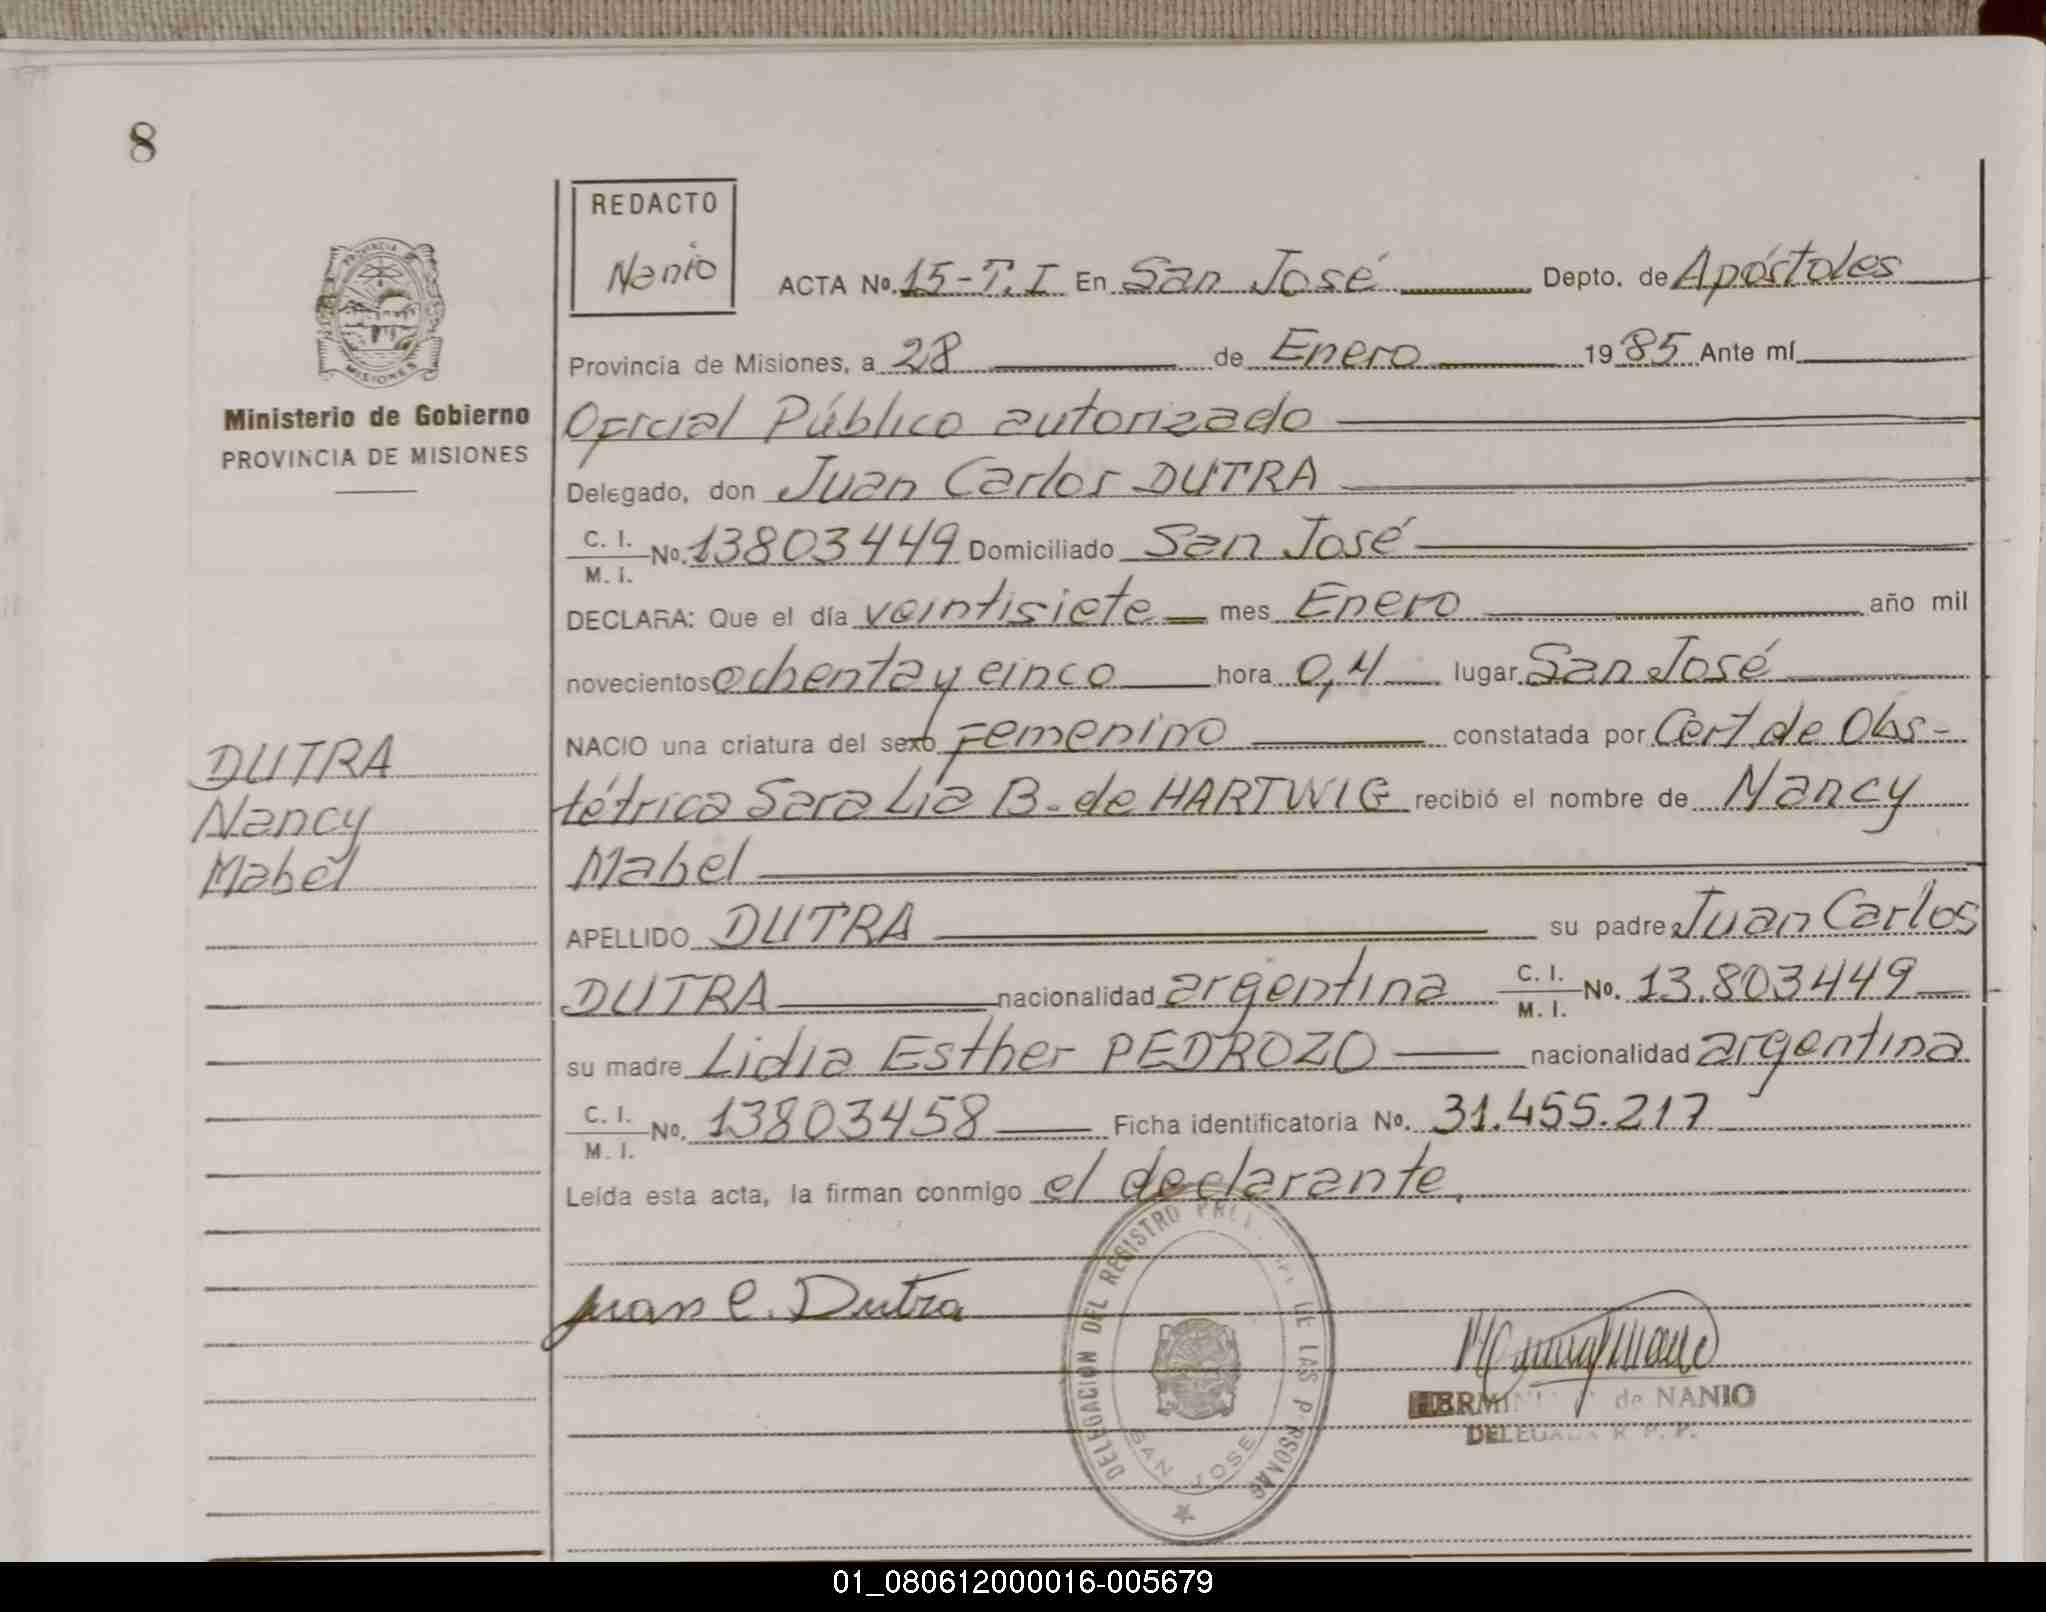 8
REDACTO
Nanio
ACTA No. 15-T.I En San José Depto. de Apóstoles
Provincia de Misiones, a 28 de Enero 1985 Ante mí
Oficial Público autorizado
Delegado, don Juan Carlos DUTRA
C. I.
M. I.
No. 13803449 Domiciliado San José
DECLARA: Que el día veintisiete mes Enero año mil
novecientos ochenta y cinco hora 0,4 lugar San José
NACIO una criatura del sexo Femenino constatada por Cert de Obs-
tétrica Sara Lia B. de HARTWIG recibió el nombre de Nancy
Mabel
APELLIDO DUTRA su padre Juan Carlos
DUTRA nacionalidad argentina C. I. M. I. No. 13.803449
su madre Lidia Esther PEDROZO nacionalidad argentina
C. I.
M. I.
No. 13803458 Ficha identificatoria No. 31.455.217
Leída esta acta, la firman conmigo el declarante.
Juan C. Dutra
PROVINCIA
MISIONES
Ministerio de Gobierno
PROVINCIA DE MISIONES
DUTRA
Nancy
Mabel
DELEGACION DEL REGISTRO DE LAS PERSONAS
SAN JOSE
de NANIO
DELEGADA R. P. P.
01_080612000016-005679